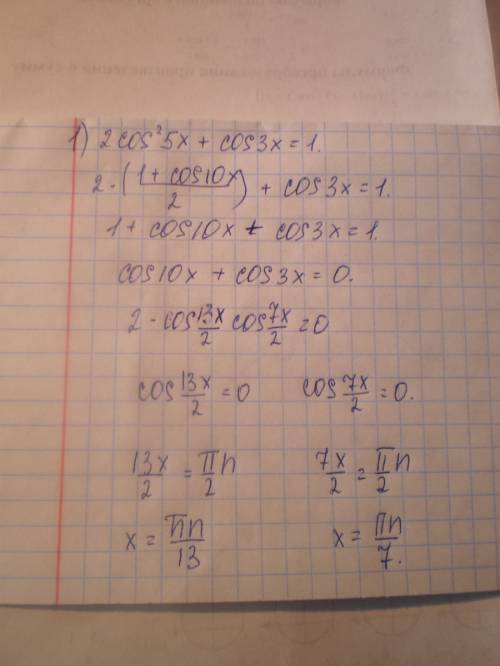 1) 2cos²5x + cos3x = 1.
2·(1 + cos10x / 2) + cos3x = 1.
1 + cos10x + cos3x = 1.
cos10x + cos3x = 0.
2·cos 13x/2 cos 7x/2 = 0
cos 13x/2 = 0 cos 7x/2 = 0.
13x/2 = π/2 n 7x/2 = π/2 n
x = πn/13 x = πn/7.